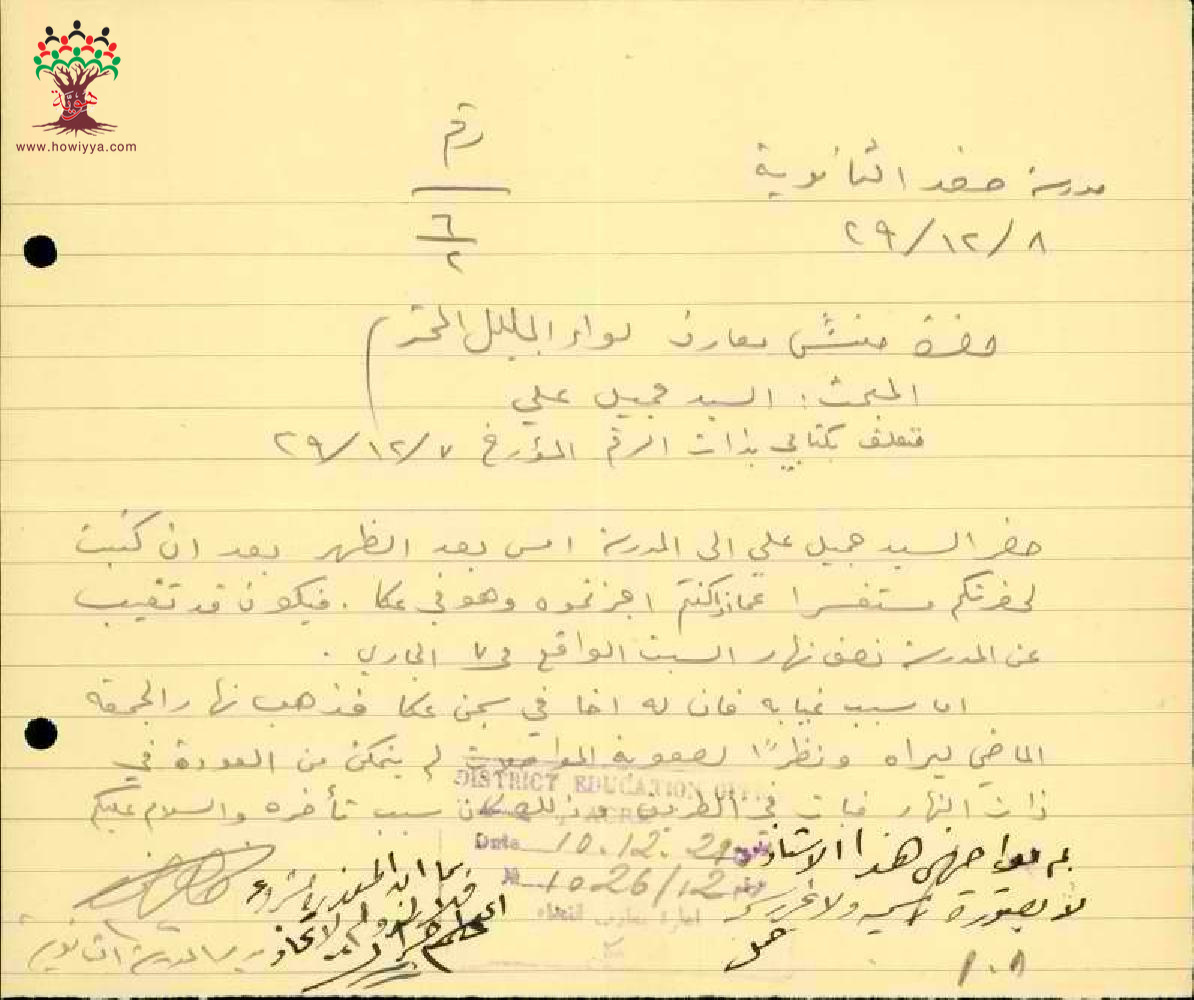 هوية
www.howiyya.com
رقم
٦
٢
مدرسة صفد الثانوية
٢٩/١٢/٨
حضرة مفتش معارف لواء الجليل المحترم
المبحث: السيد جميل علي
متعلق بكتابي بذات الرقم المؤرخ ٢٩/١٢/٧
حضر السيد جميل علي الى المدرسة امس بعد الظهر بعد ان كتبت
لحضرتكم مستفسرا عما اذا كنتم اجزتموه وهو في عكا. فيكون قد تغيب
عن المدرسة نصف نهار السبت الواقع في ٧ الجاري.
اما سبب غيابه فان له اخا في سجن عكا فذهب نهار الجمعة
الماضي ليراه ونظرًا لصعوبة المواصلات لم يتمكن من العودة في
ذات النهار فبات في الطريق وذلك كان سبب تأخره والسلام عليكم
DISTRICT EDUCATION OFFICE
ACRE
Date 10.12.29
№ 1026/12
هذا الاستاذ
لا بصورة رسمية ولا غير
بما ان
مدير المدرسة الثانوية